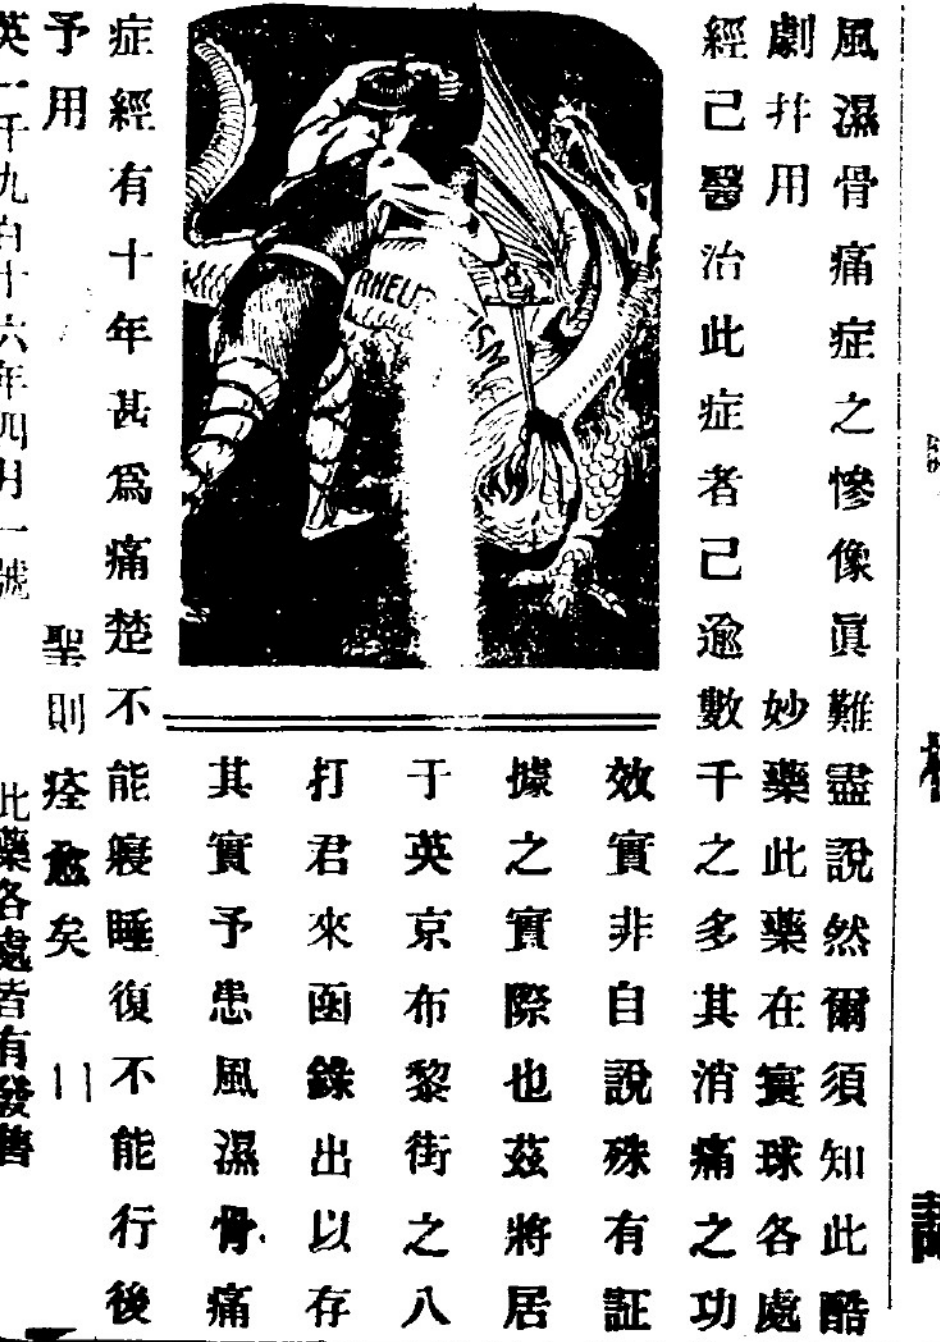 風濕骨痛症之慘像眞難盡說然爾須知此酷
劇井用 妙藥此藥在寰球各處
經己醫治此症者己逾數千之多其消痛之功
效實非自說殊有証
據之實際也茲將居
于英京布黎街之八
打君來函錄出以存
其實予患風濕骨痛
症經有十年甚爲痛楚不能寢睡復不能行後
予用 聖則痊愈矣
英一千九百十六年四月一號 此藥各處皆有發售
RHEUMATISM